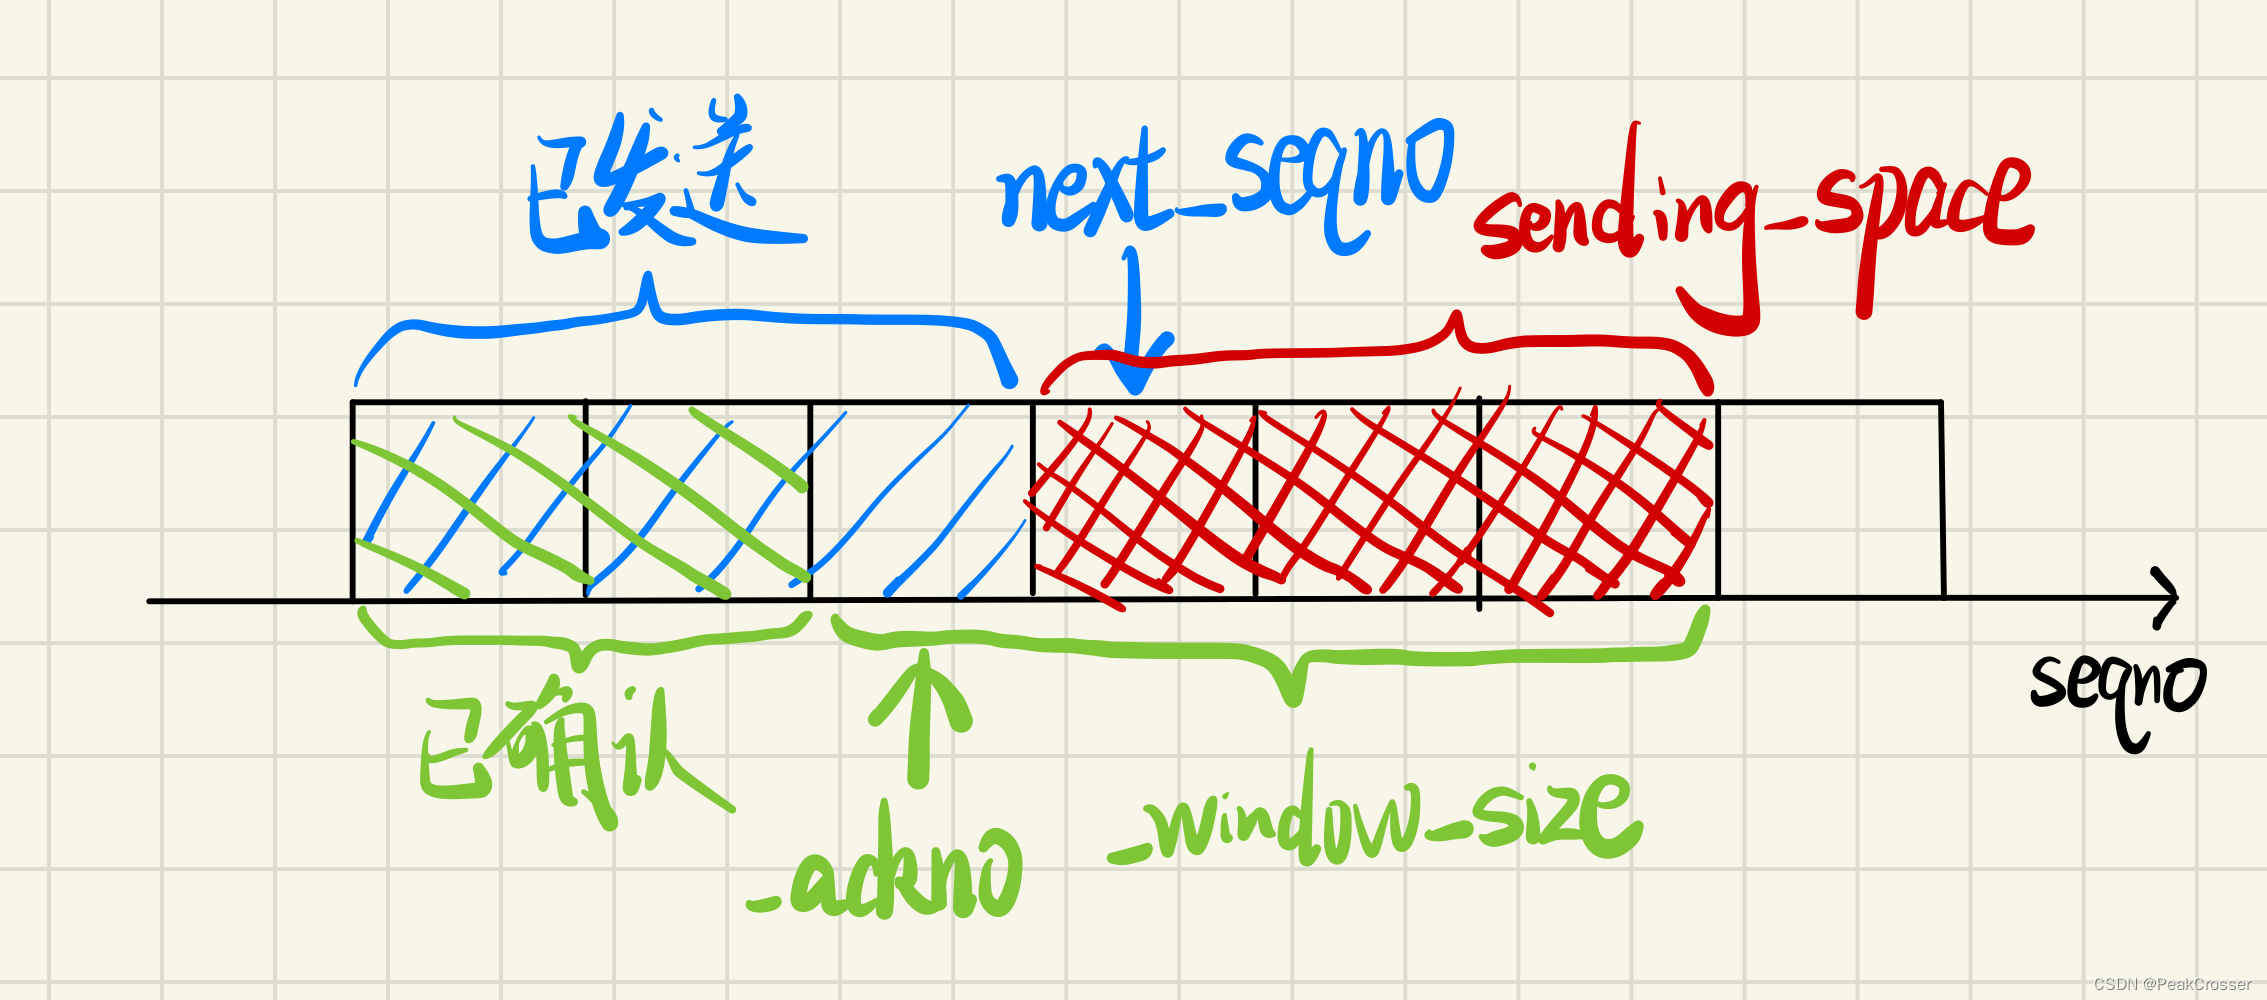 已发送
next_seqno
sending_space
已确认
_ackno
_window_size
seqno
CSDN @PeakCrosser